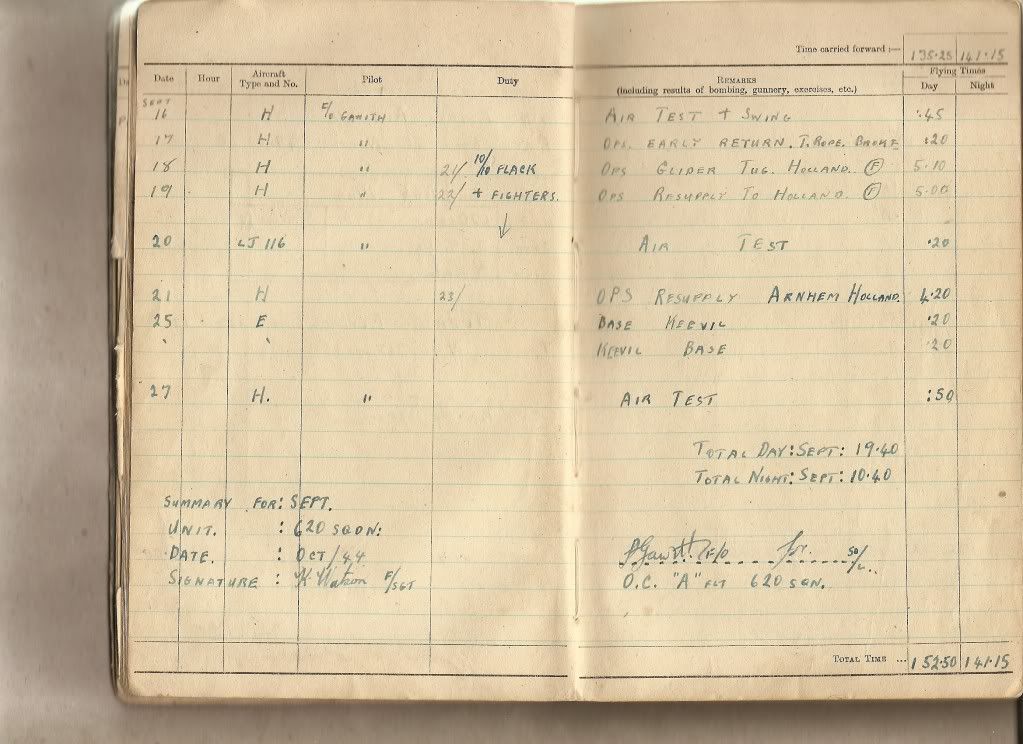 Time carried forward :— 135·25 141·15
Date Hour Aircraft Type and No. Pilot Duty REMARKS (including results of bombing, gunnery, exercises, etc.) Flying Times Day Night
SEPT
16 H F/O GAWITH AIR TEST + SWING :45
17 H " OPS. EARLY RETURN. T. ROPE. BROKE :20
18 H " 21/ 10/10 FLACK OPS GLIDER TUG. HOLLAND. (F) 5·10
19 H " 22/ + FIGHTERS. OPS RESUPPLY TO HOLLAND. (F) 5·00
20 LJ 116 " AIR TEST ·20
21 H 23/ OPS RESUPPLY ARNHEM HOLLAND. 4·20
25 E BASE KEEVIL ·20
" " KEEVIL BASE ·20
27 H. " AIR TEST :50
TOTAL DAY: SEPT: 19·40
TOTAL NIGHT: SEPT: 10·40
SUMMARY FOR: SEPT.
UNIT. : 620 SQDN:
DATE. : OCT/44
SIGNATURE : F/SGT
F/O for. SQ/L..
O.C. "A" FLT 620 SQN.
TOTAL TIME ... 152·50 141·15